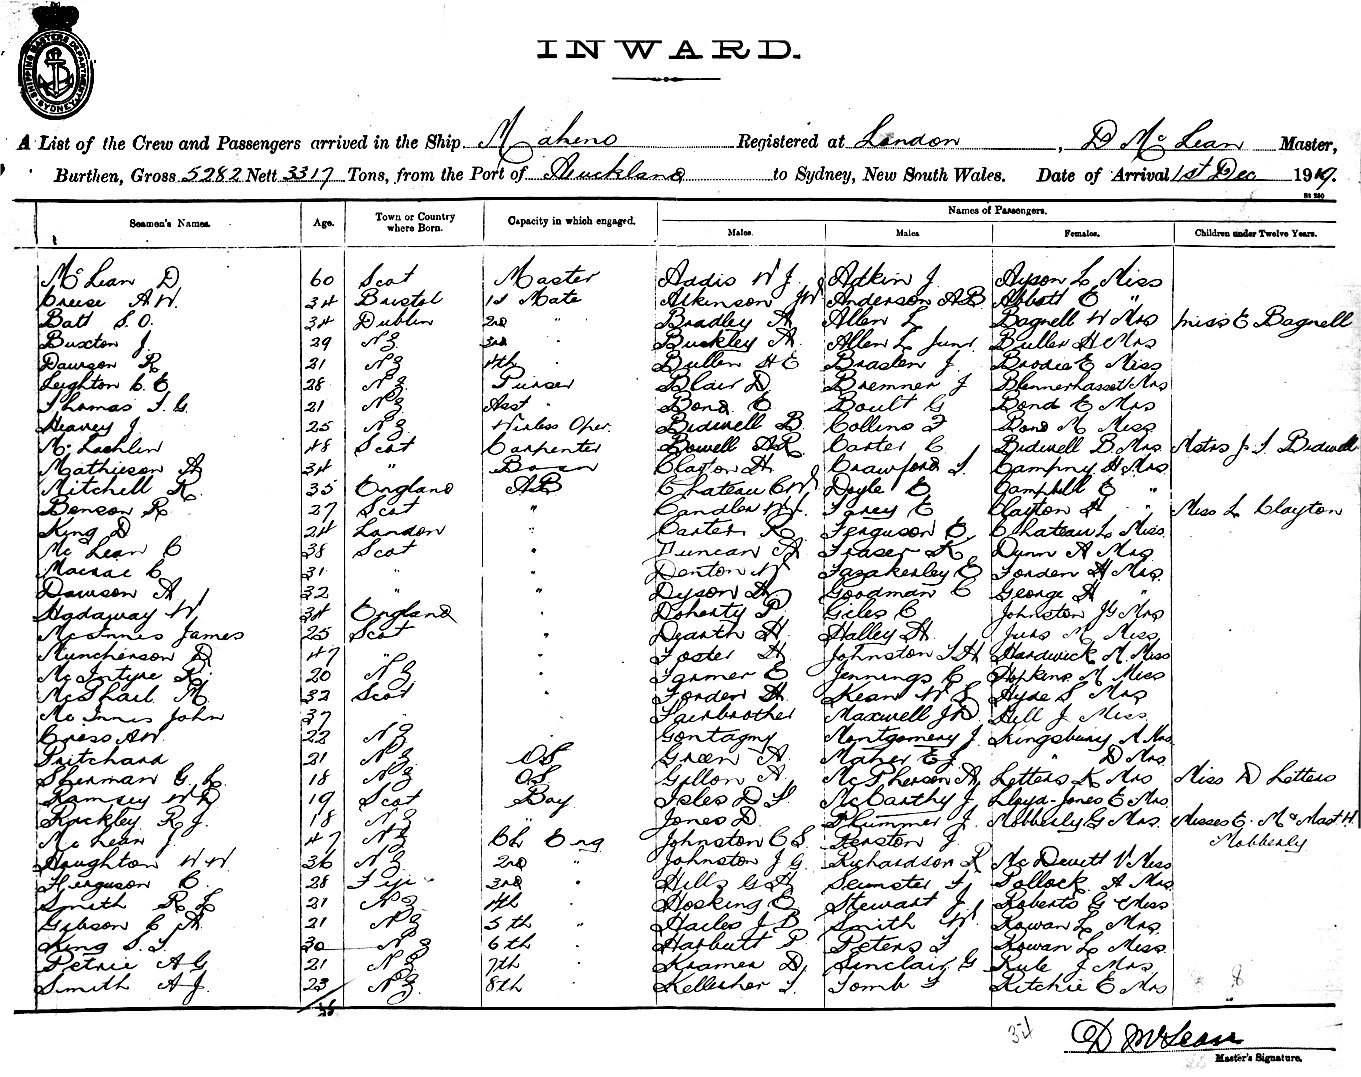 SHIPPING MASTERS DEPARTMENT SYDNEY
INWARD.
A List of the Crew and Passengers arrived in the Ship Maheno Registered at London, D McLean Master,
Burthen, Gross 5282 Nett 3317 Tons, from the Port of Auckland to Sydney, New South Wales. Date of Arrival 1st Dec 1917.
Names of Passengers.
Seamen's Names. Age. Town or Country where Born. Capacity in which engaged. Males. Males Females. Children under Twelve Years.
McLean D 60 Scot Master Addis W J Adkin J. Ayson L Miss
Creese A W. 34 Bristol 1st Mate Atkinson JW Anderson AB Abbott E "
Batt S. O. 34 Dublin 2nd " Bradley A Allen L Bagnell W Mrs Miss E Bagnell
Buxton J. 29 NZ 3rd " Buckley A. Allen L Junr Buller H Mrs
Dawson R 21 NZ 4th Bullen H E Braslen J. Brodie E Miss
Leighton C. E 28 NZ Purser Blair D Bremner J Blennerhasset Mrs
Thomas T. G. 21 NZ Asst Bond E Boult G Bond E Mrs
Heaney J. 25 NZ Wireless Oper. Bidwell B. Collins F Bond M Miss
McLachlan 48 Scot Carpenter Bowell AR Carter C Bidwell B Mrs Mstrs J. S Bidwell
Mathieson A 34 " Bosun Clayton H. Crawford S. Campny H Mrs
Mitchell R. 35 England AB Chateau C W Doyle E Campbell E "
Benson R 27 Scot " Candler W. J. Farey E Clayton H " Miss L Clayton
King D 24 London Carter R Ferguson E. Chateau L Miss
McLean C 38 Scot " Duncan A Fraser K Dynn A Mrs
Macrae C. 31 " " Denton W Fazakerley E Forden H Mrs
Dawson A 32 " " Dyson H Goodman C George H "
Hadaway W, 34 England Doherty P. Giles C Johnston JG Mrs
McInnis James 25 Scot " Dearth H. Halley A. Jurs M. Miss
Muncherson D 47 " " Foster H Johnston S H Hardwick M. Miss
McIntyre R. 20 NZ " Farmer E Jennings C Hopkins M Miss
McPhail M 32 Scot " Forden H. Kean W S Hyde S Mrs
McInnis John 37 " Fairbrother Maxwell JD. Hill J Miss
Cress A W. 22 NZ Gontagny Montgomery J. Kingsbury A Mrs
Pritchard 21 NZ OS Green A. Maher E J. " D Mrs
Sherman G L. 18 NZ OS Gillon A. McPherson A. Letters K Mrs Miss D Letters
Ramsey W R 19 Scot Boy Isles D S. McCarthy J Lloyd-Jones E Mrs
Rackley R J. 18 NZ " Jones D. Plummer J. Mobberly G Mrs Misses E. M & Mast H
McLean J 47 NZ Ch Eng Johnston C S. J Mobberly
Houghton W W 36 NZ 2nd " Johnston J G. Richardson R McDevitt V Miss
Ferguson C. 28 Fiji 3rd " Hills G H Pollock A Mrs
Smith R L 21 NZ 4th Hosking E Stewart J Roberts G Miss
Gibson C A. 21 NZ 5th " Hailes J B Smith W. Rowan L Mrs.
King S. T. 30 NZ 6th " Harbutt P Peters F Rowan L Miss
Petrie A G 21 NZ 7th " Kramer D, Sinclair G Rule J Mrs
Smith A J. 23 NZ 8th " Kellesher T. Tomb F Ritchie E Mrs 8
34 D McLean
Master's Signature.